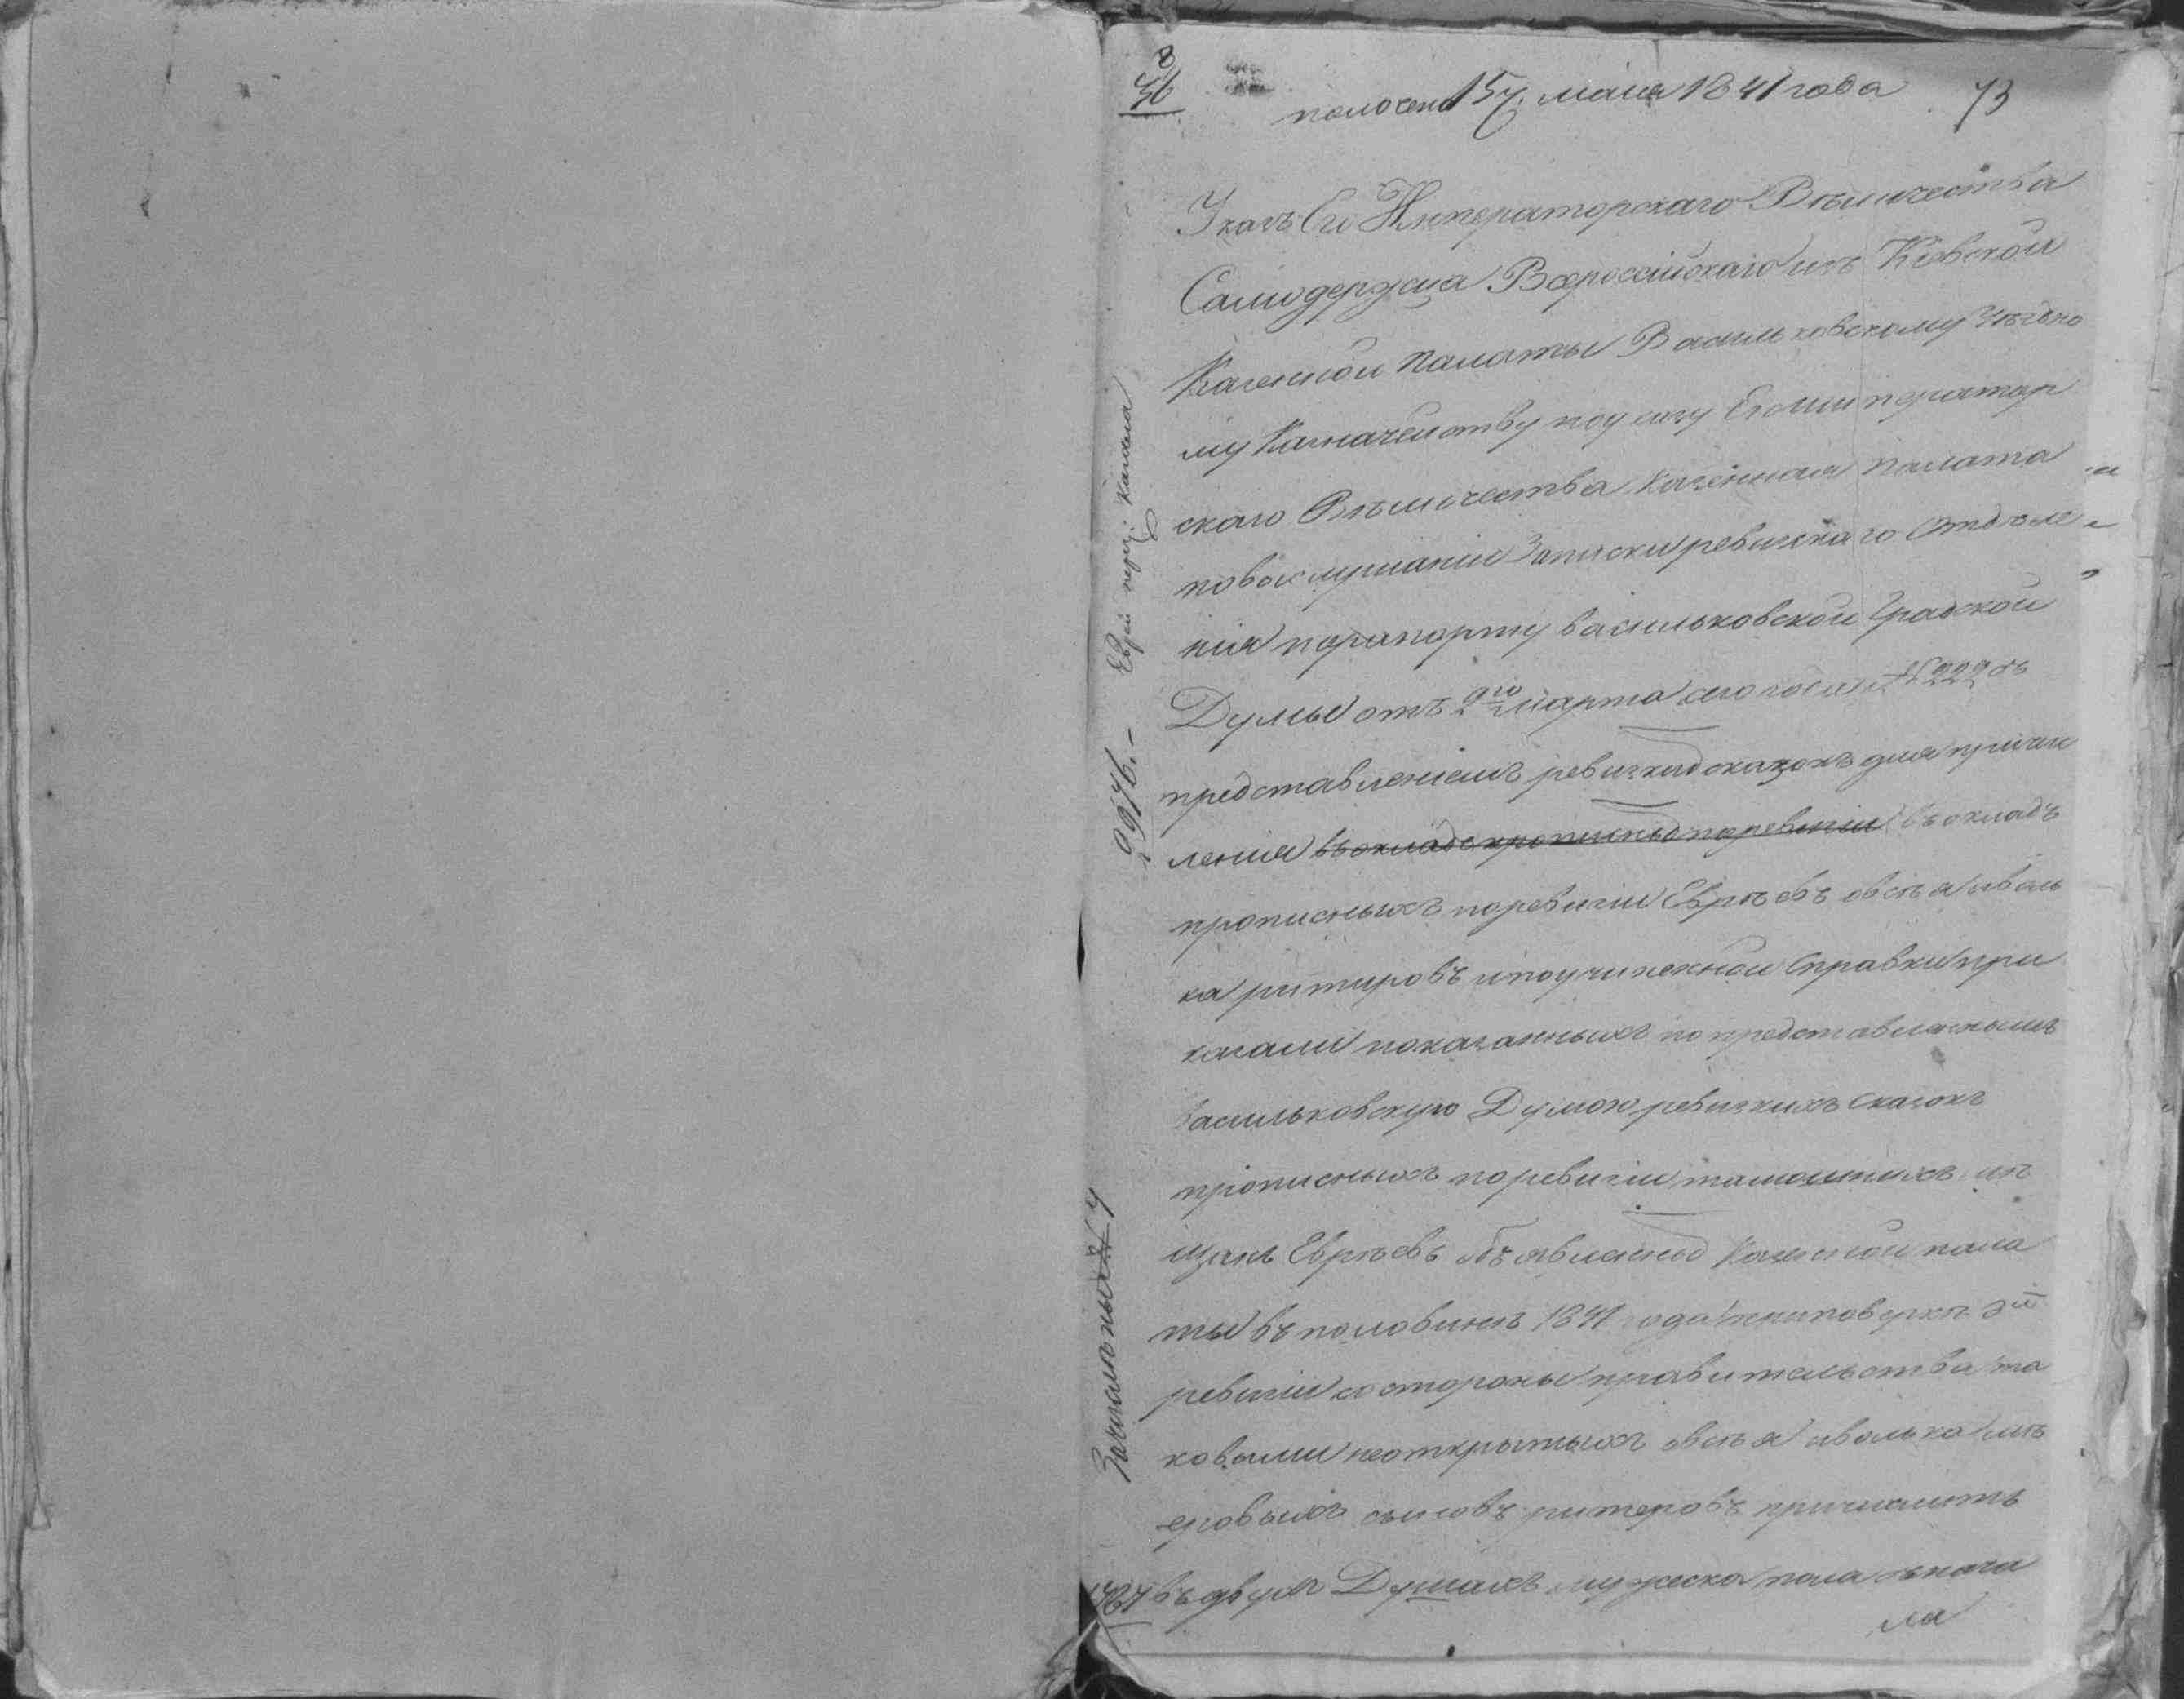 8
36
получено 15ч. маия 1841 года 73
Указъ Его Императорскаго Величества
Самодержца Всероссiйскаго изъ Кіевской
Казенной палаты Васильковскому Уѣздно
му Казначейству по указу Его Император
скаго Величества казенная палата
повыслушаніи Записки ревизскаго Отдѣле
нія порапорту васильковской Градской
Думы отъ 9го марта сего года №999 съ
представленіемъ ревизкихъ сказокъ для причис
ленія въ окладъ
прописныхъ поревизіи Евреевъ овсѣя иволь
ка ритировъ ипоучиненной Справки при
казали показанныхъ по представленнымъ
васильковскую Думою ревизкихъ сказокъ
прописныхъ поревизіи тамошнихъ мѣ
щанъ Евреевъ объявленныхъ Казенной пала
ты въ половинѣ 1841 года приповеркѣ
ревизіи состороны правительства та
ковыми неоткрытыхъ овсѣя иволька
еровыхъ сыновъ ритеровъ причислить
въ двухъ Душахъ мужеска пола сънача
ла
2976.- Еврей Кагала